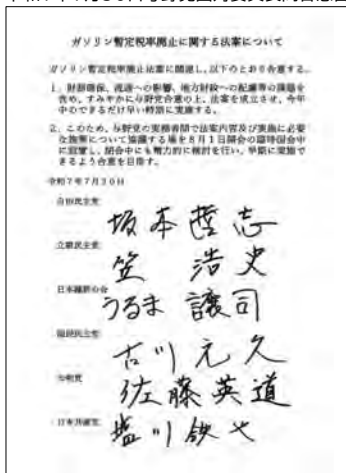 ガソリン暫定税率廃止に関する法案について
ガソリン暫定税率廃止法案に関連し、以下のとおり合意する。
1. 財源確保、流通への影響、地方財政への配慮等の課題を
含め、すみやかに与野党合意の上、法案を成立させ、今年
中のできるだけ早い時期に実施する。
2. このため、与野党の実務者間で法案内容及び実施に必要
な施策について協議する場を8月1日開会の臨時国会中
に設置し、閉会中にも精力的に検討を行い、早期に実施で
きるよう合意を目指す。
令和7年7月30日
自由民主党
坂本哲志
立憲民主党
笠 浩史
日本維新の会
うるま譲司
国民民主党
古川元久
公明党
佐藤英道
日本共産党
塩川鉄也